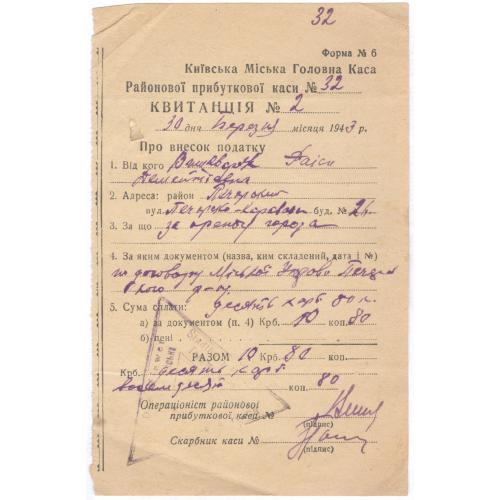 32
Форма № 6
Київська Міська Головна Каса
Районової прибуткової каси № 32
КВИТАНЦІЯ № 2
30 дня березня місяця 1943 р.
Про внесок податку
1. Від кого Раїси
2. Адреса: район Печерський
вул. буд. № 26
3. За що за оренду города
4. За яким документом (назва, ким складений, дата і №)
по договору Міської
5. Сума сплати: десять карб 80 к.
а) за документом (п. 4) Крб. 10 коп. 80
б) пені
РАЗОМ 10 Крб. 80 коп.
Крб. десять карб
коп. 80
Операціоніст районової
прибуткової каси №
(підпис)
Скарбник каси №
(підпис)